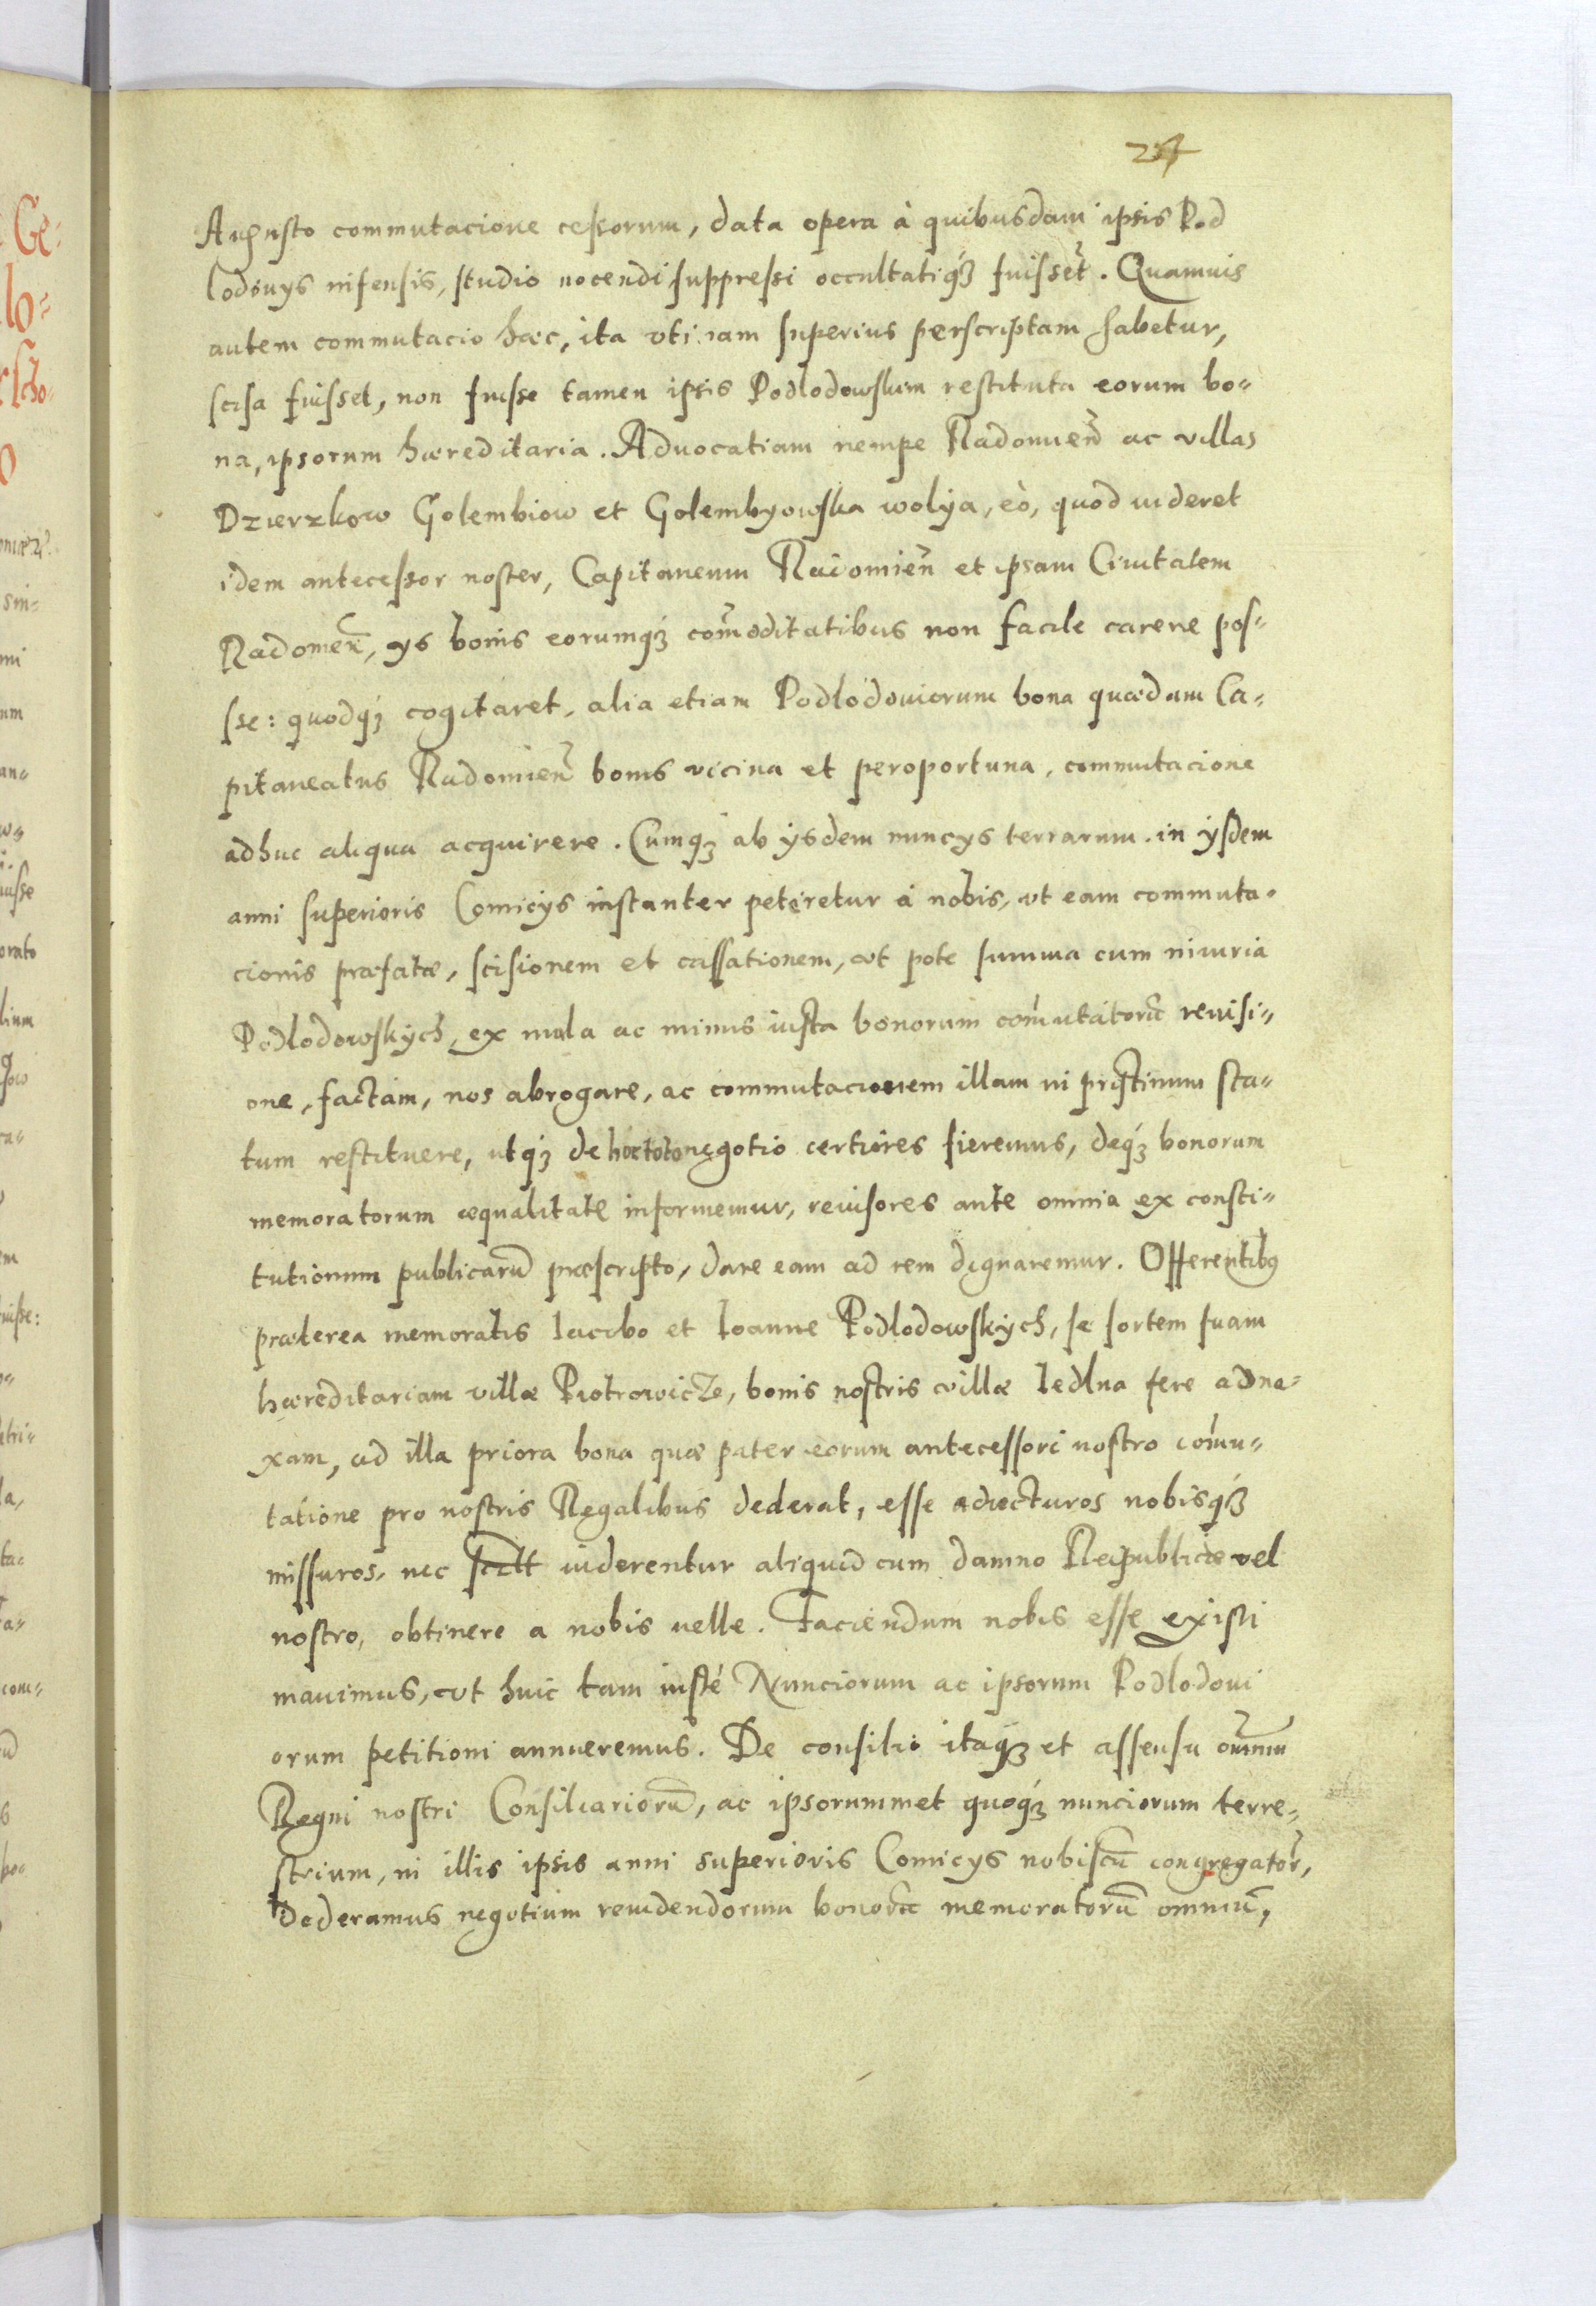 257
Augusto commutacione cessorum, data opera à quibusdam ipsis Pod
lodovys infensis, studio nocendi, suppressi occultatiq́ꝫ fuisset̃. Quamuis
autem commutacio hæc, ita vti iam superius perscriptam habetur,
scisa fuisset, non fuisse tamen ipsis Podlodowskim restituta eorum bo-
na, ipsorum hæreditaria. Aduocatiam nempe Radomien̄ ac villas
Dzierzkow Golembiow et Golembyowska wolya, eò, quod uideret
idem antecessor noster, Capitaneum Radomien̄ et ipsam Ciuitatem
Radomen̄, ys bonis eorumq́ꝫ com̄oditatibus non facile carere pos-
sse: quodq́ꝫ cogitaret, alia etiam Podlodouiorum bona quædam Ca-
pitaneatus Radomien̄ bonis vicina et peroportuna, commutacione
adhuc aliqua acquirere. Cumq́ꝫ ab ysdem nuncys terrarum in ysdem
anni superioris Comicys instanter peteretur à nobis, vt eam commuta-
cionis præfatæ, scisionem et cassationem, vt pote summa cum iniuria
Podlodowskych, ex mala ac minus iusta bonorum com̄utatorũ reuisi-
one, factam, nos abrogare, ac commutacionem illam in pristinum sta-
tum restituere, utq́ꝫ de hoc toto negotio certiores fieremus, deq́ꝫ bonorum
memoratorum æqualitate informemur, reuisores ante omnia ex consti-
tutionum publicarũ præscripto, dare eam ad rem dignaremur. Offerentibꝰ
præterea memoratis Iacobo et Ioanne Podlodowskych, se sortem suam
hæreditariam villæ Piotrowicze, bonis nostris villæ Iedlna fere adne-
xam, ad illa priora bona quæ pater eorum antecessori nostro com̄u-
tatione pro nostris Regalibus dederat, esse adiecturos nobisq́ꝫ
missuros, nec uiderentur aliquid cum damno Reipublicæ vel
nostro, obtinere a nobis uelle. Faciendum nobis esse existi
mauimus, vt huic tam iusté Nunciorum ac ipsorum Podlodoui
orum petitioni annueremus. De consilio itaq́ꝫ et assensu omnium
Regni nostri Consiliariorũ, ac ipsorummet quoq́ꝫ nunciorum terre-
strium, in illis ipsis anni superioris Comicys nobiscũ congregator̃,
Dederamus negotium reuidendorum bonorũ memoratorũ omniũ,